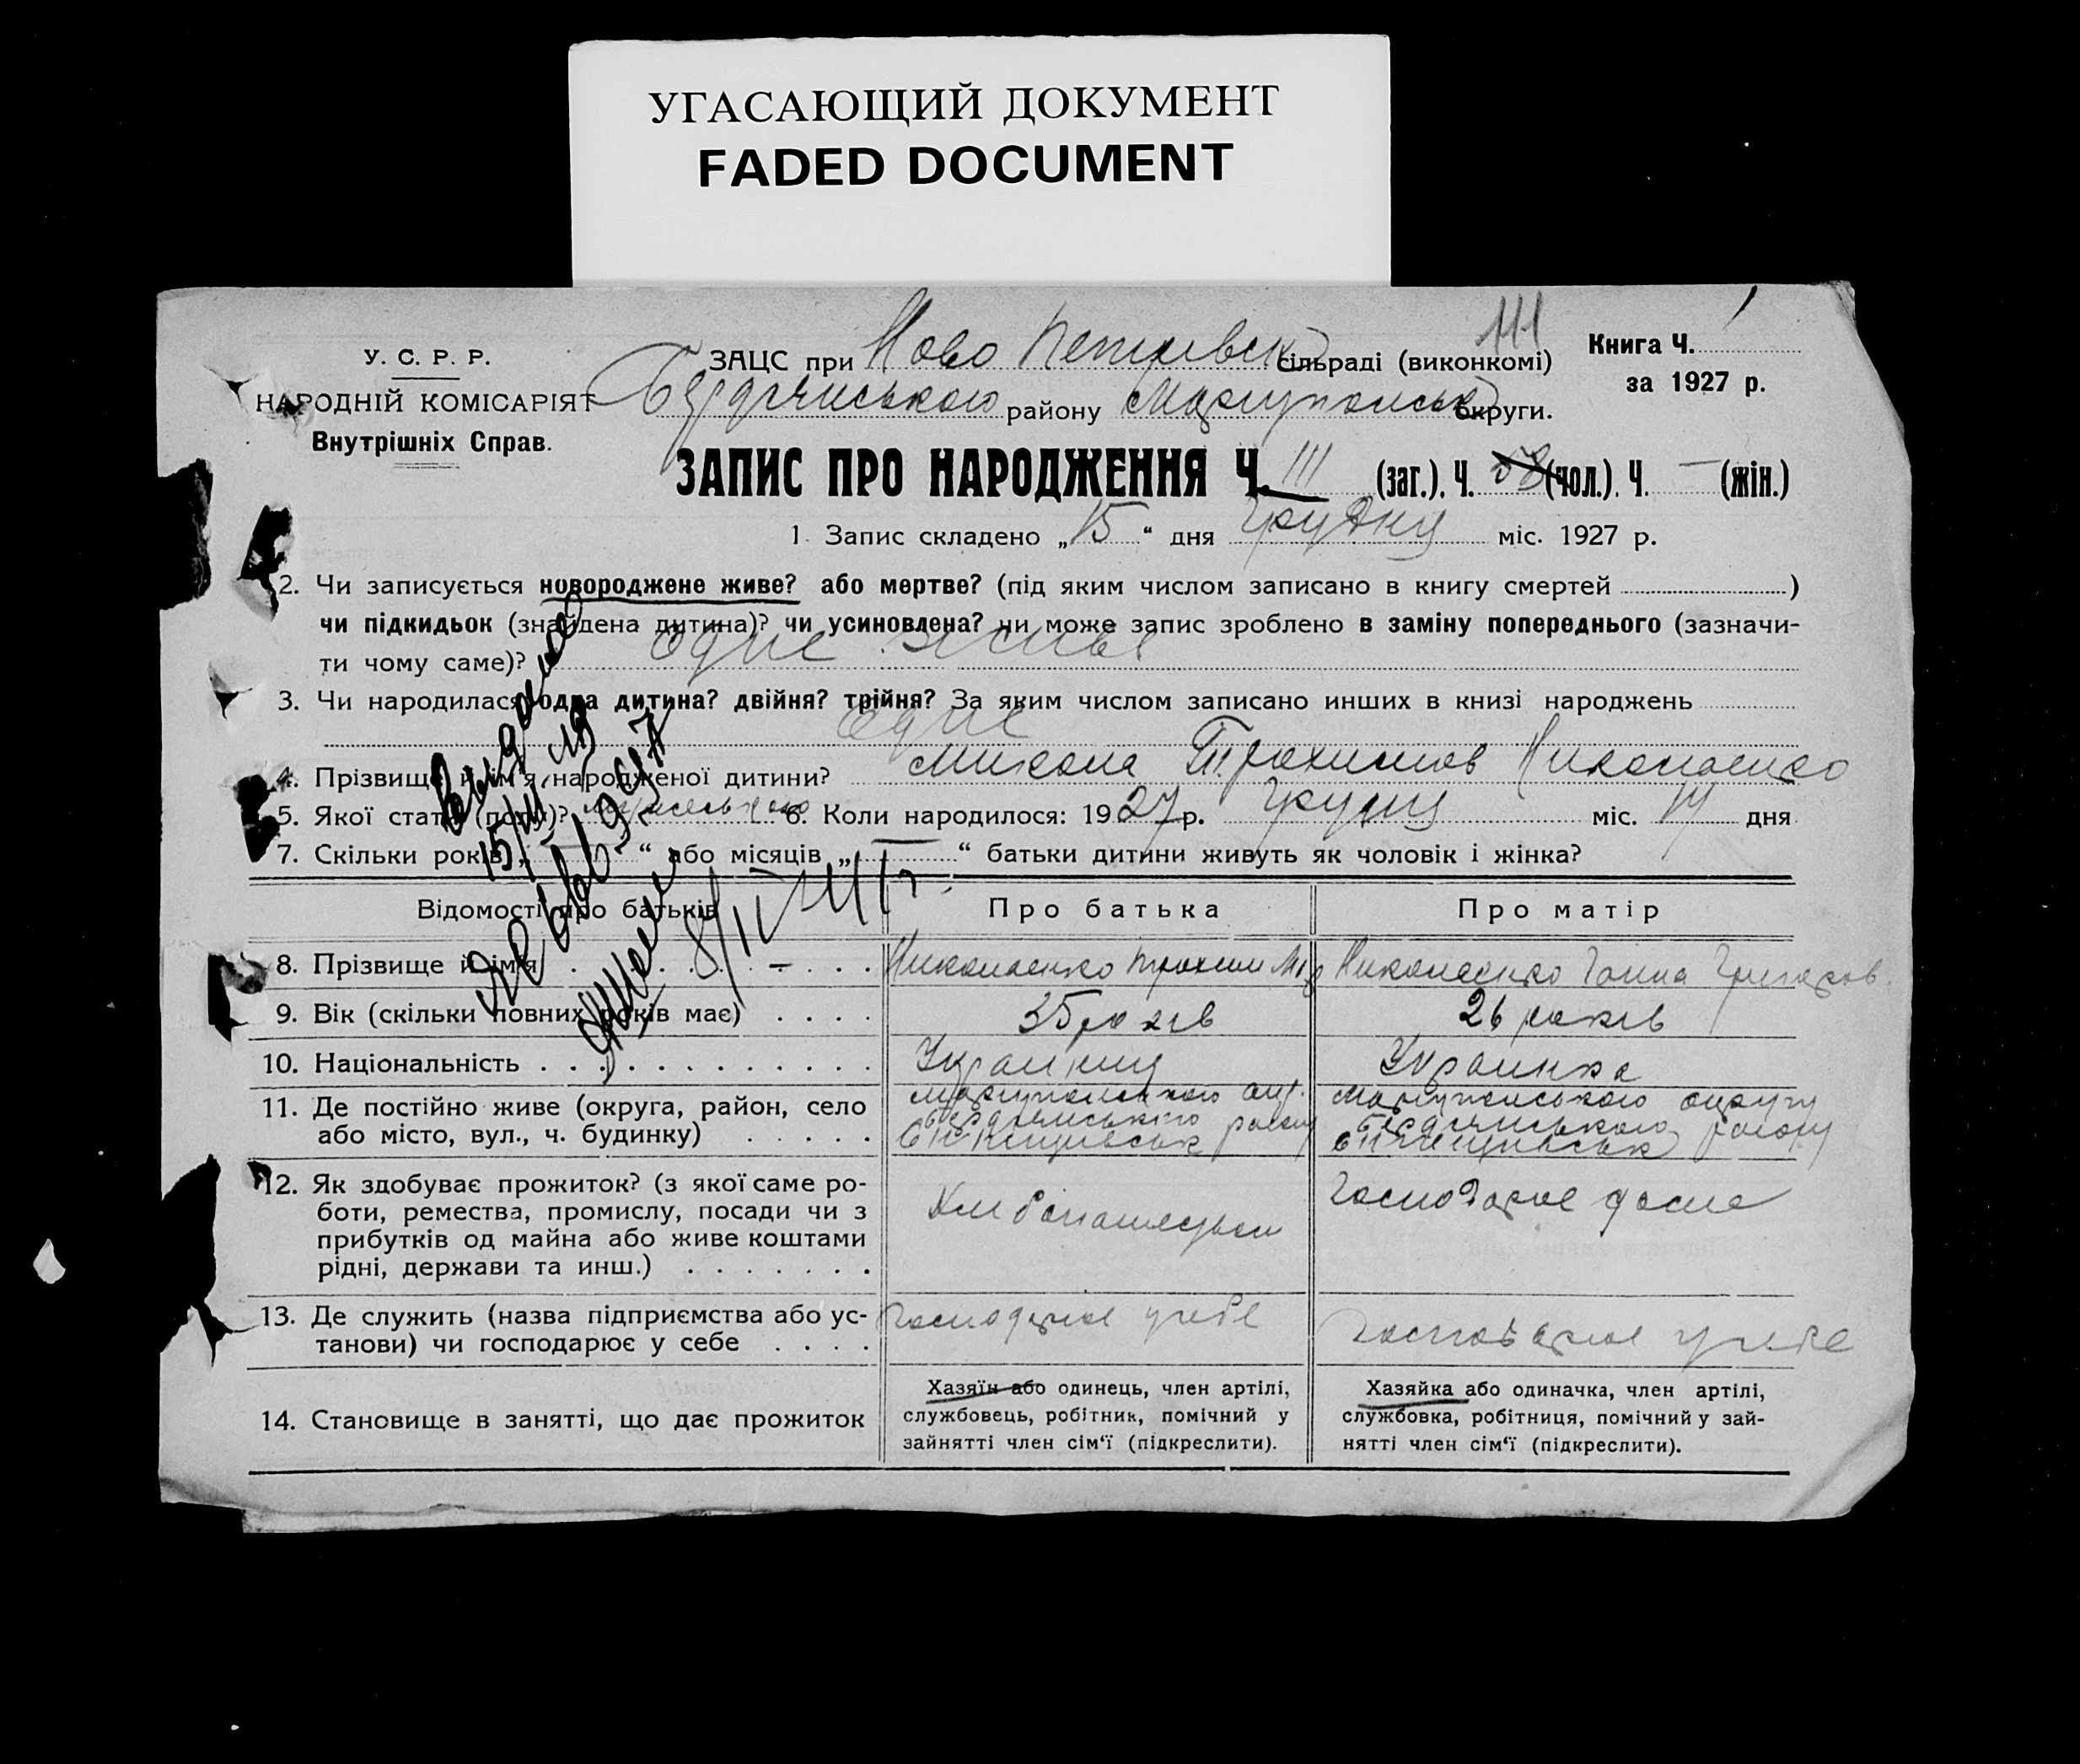 УГАСАЮЩИЙ ДОКУМЕНТ
FADED DOCUMENT
У. С. Р. Р.
НАРОДНІЙ КОМІСАРІЯТ
Внутрішніх Справ.
111
ЗАЦС при Ново Петрівськ сільраді (виконкомі)
Бердянського району Маріупольськ округи.
Книга Ч. 1
за 1927 р.
ЗАПИС ПРО НАРОДЖЕННЯ Ч. 111 (заг.). Ч. 58 (чол.). Ч. — (жін.)
1. Запис складено „15“ дня Грудня міс. 1927 р.
2. Чи записується новороджене живе? або мертве? (під яким числом записано в книгу смертей )
чи підкидьок (знайдена дитина)? чи усиновлена? чи може запис зроблено в заміну попереднього (зазначи-
ти чому саме)? одне живе
3. Чи народилася одна дитина? двійня? трійня? За яким числом записано инших в книзі народжень
одне
4. Прізвище й ім'я народженої дитини? Микола Трохимов Николаенко
5. Якої статі (полу)? 6. Коли народилося: 1927 р. Грудня міс. 14 дня
7. Скільки років „ — “ або місяців „ — “ батьки дитини живуть як чоловік і жінка?
Видано
15/VII
8/II
Відомості про батьків
Про батька
Про матір
8. Прізвище й ім'я Николаенко Трохим Николаенко Ганна Григоров.
9. Вік (скільки повних років має) 35 років 26 років
10. Національність Украинец Украинка
11. Де постійно живе (округа, район, село Маріупольского окр. Маріупольського округу
або місто, вул., ч. будинку) Бердянського району Бердянського району
12. Як здобуває прожиток? (з якої саме ро-
боти, ремества, промислу, посади чи з
прибутків од майна або живе коштами
рідні, держави та инш.)
Хлиборашеством
Господарює дома
13. Де служить (назва підприємства або ус-
танови) чи господарює у себе
Господарює у себе
Господарює у себе
14. Становище в занятті, що дає прожиток
Хазяїн або одинець, член артілі,
службовець, робітник, помічний у
зайнятті член сім'ї (підкреслити).
Хазяйка або одиначка, член артілі,
службовка, робітниця, помічний у зай-
нятті член сім'ї (підкреслити).